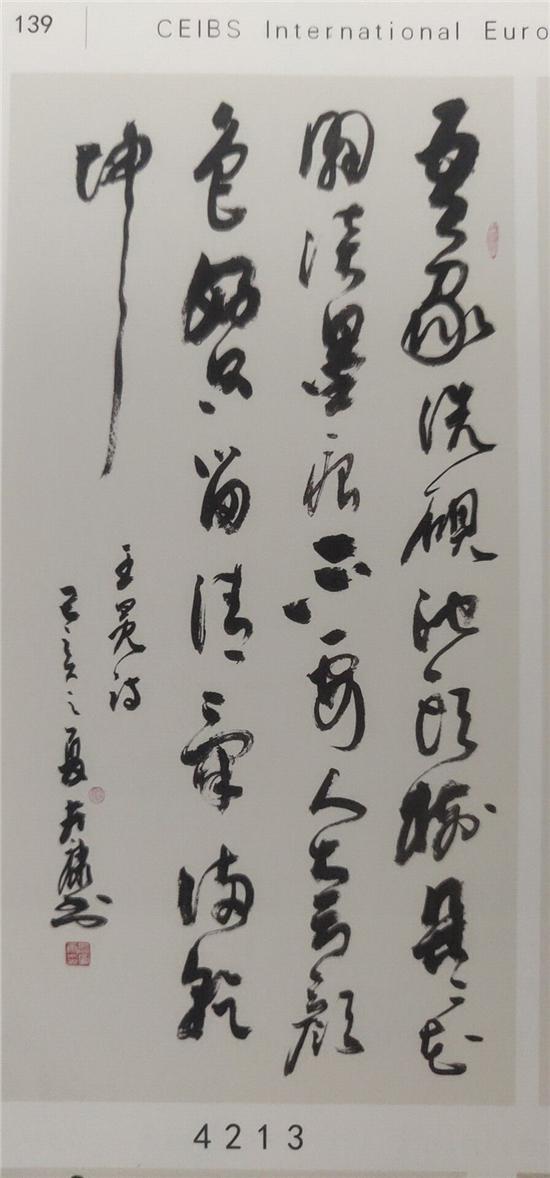 139
CEIBS International Euro
吾家洗硯池頭樹花
開淡墨痕不要人夸顏
色好只留清氣滿乾
坤
王冕詩
己亥之夏書
4213